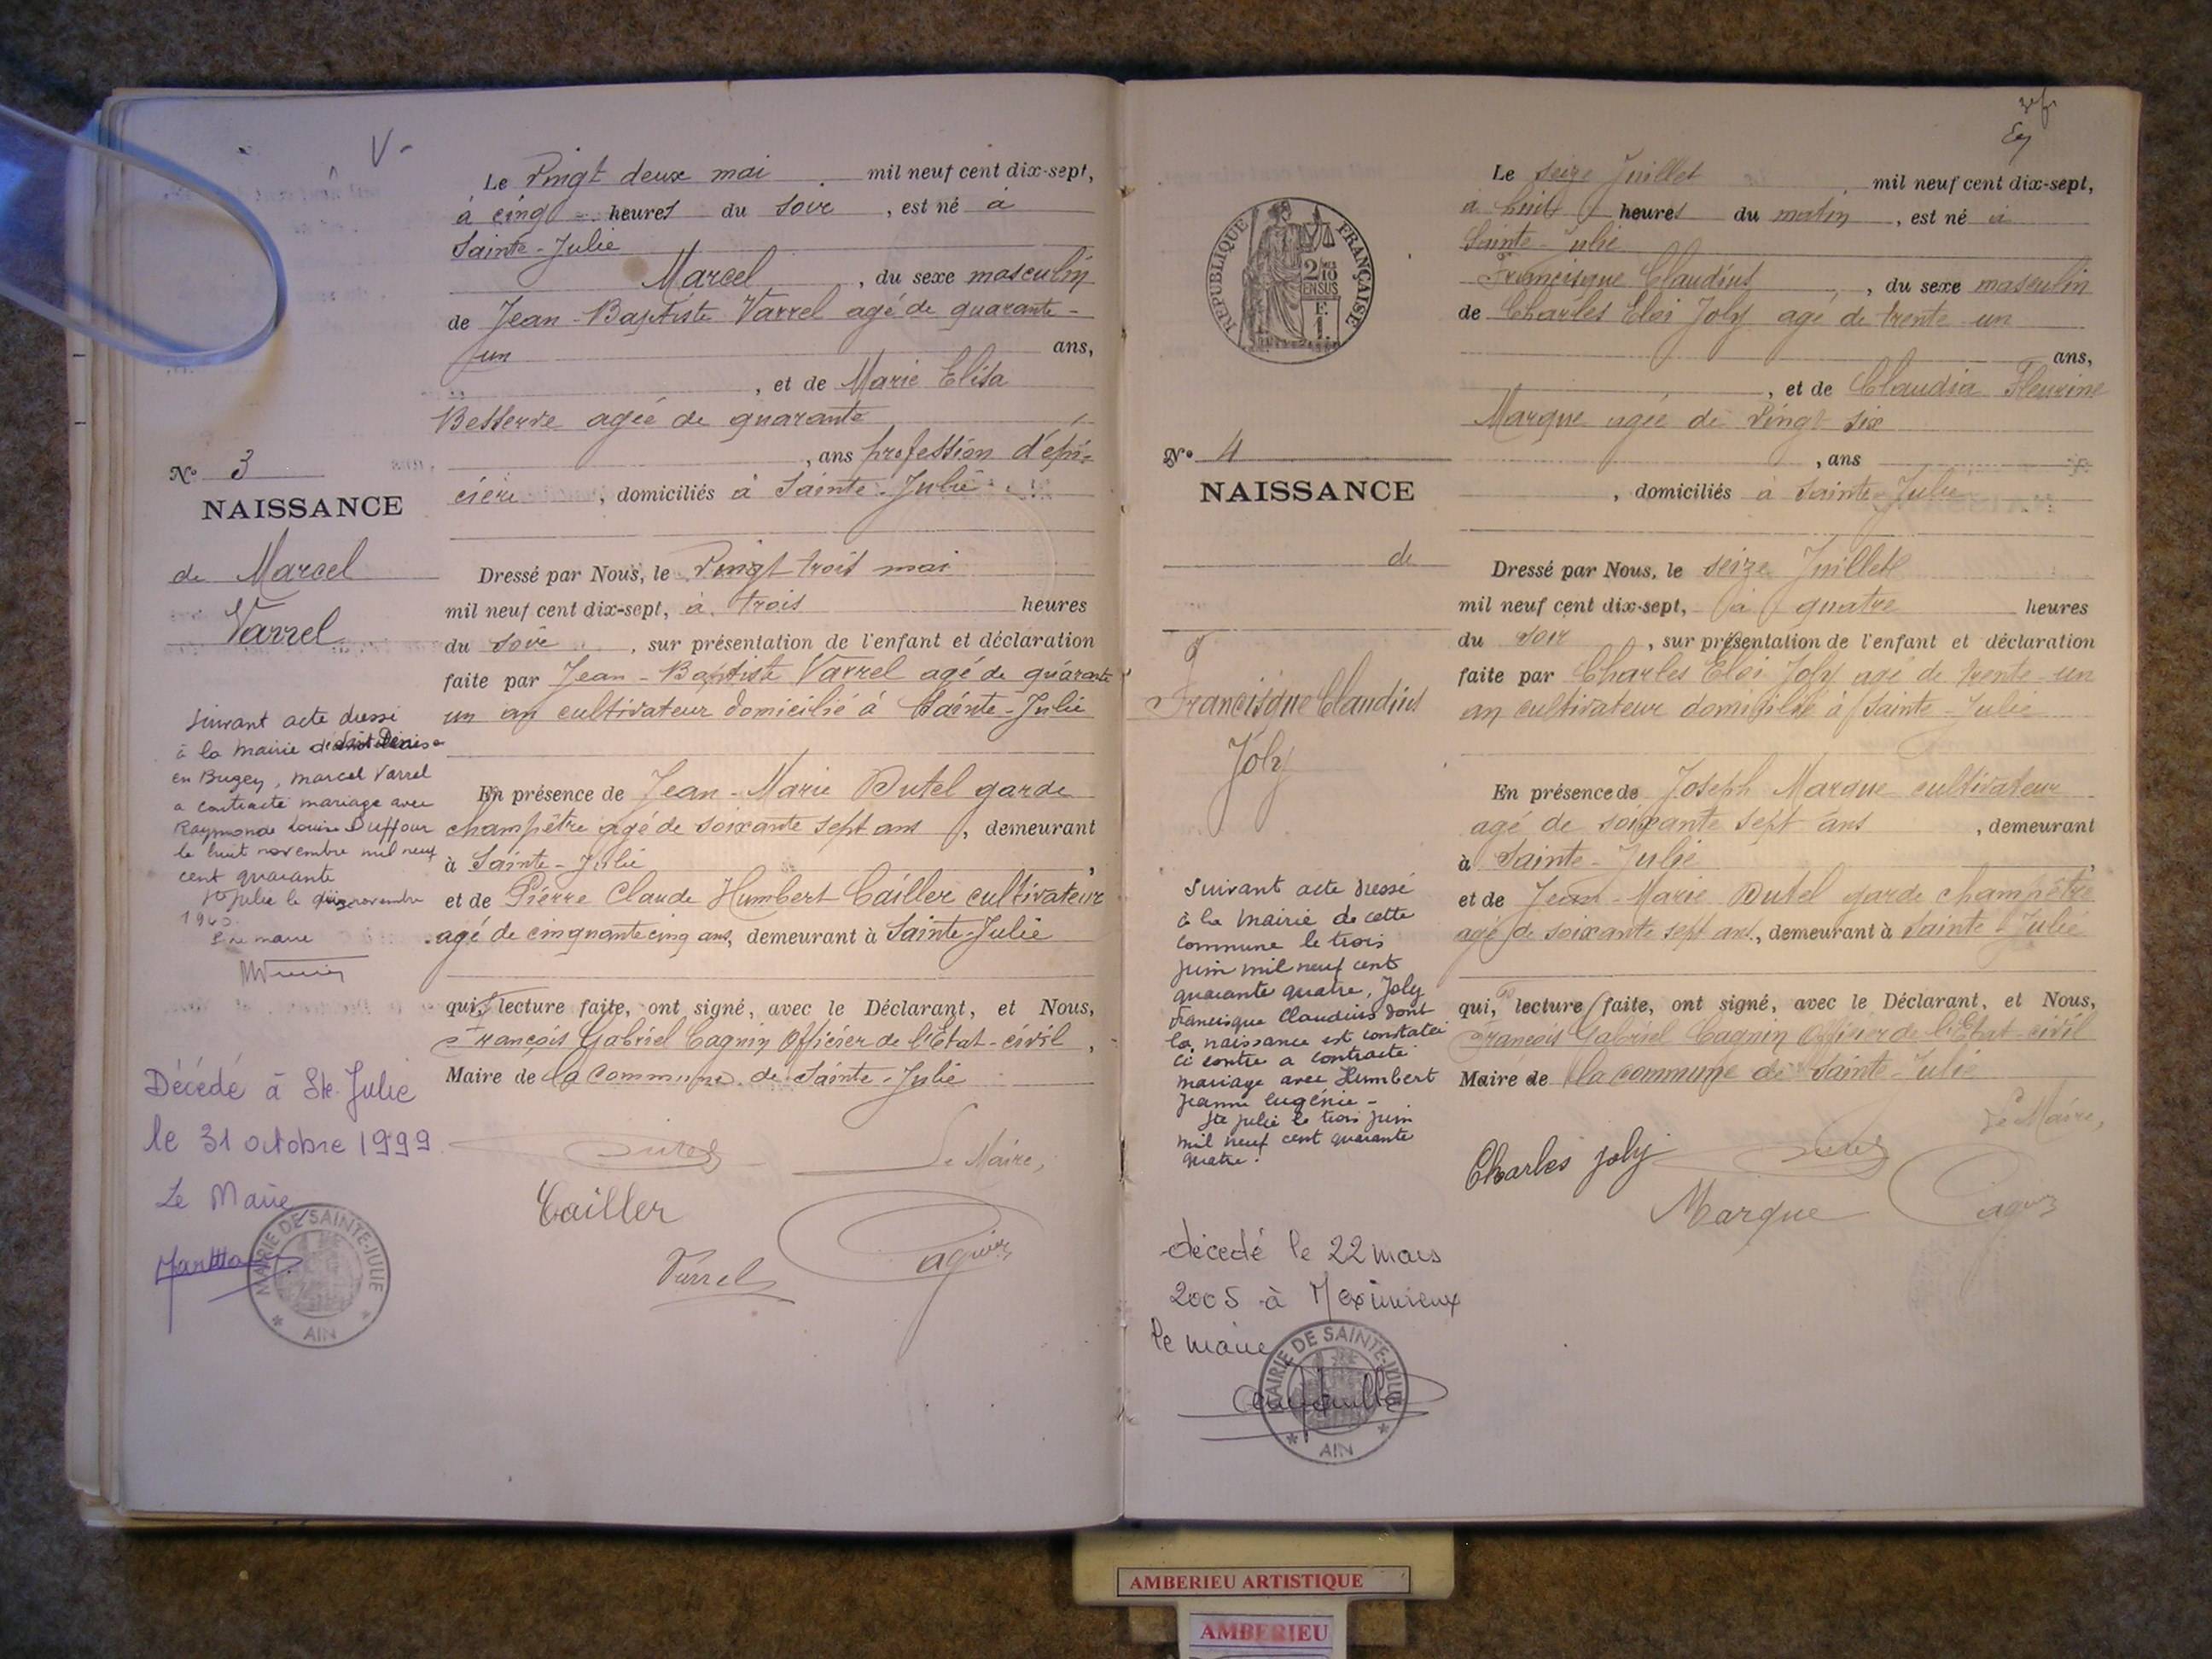 V-
Le Vingt deux mai mil neuf cent dix-sept,
à cinq heures du soir, est né à
Sainte-Julie
Marcel, du sexe masculin
de Jean-Baptiste Varrel agé de quarante-
un ans,
, et de Marie Elisa
Besserve agée de quarante
, ans profession d'épi-
cière, domiciliés à Sainte-Julie
Dressé par Nous, le Vingt trois mai
mil neuf cent dix-sept, à trois heures
du soir, sur présentation de l'enfant et déclaration
faite par Jean-Baptiste Varrel agé de quarante
un an cultivateur domicilié à Sainte-Julie
En présence de Jean-Marie Dutel garde
champêtre agé de soixante sept ans, demeurant
à Sainte-Julie,
et de Pierre Claude Humbert Cailler cultivateur
agé de cinquante cinq ans, demeurant à Sainte-Julie
qui, lecture faite, ont signé, avec le Déclarant, et Nous,
François Gabriel Cagnin Officier de l'Etat-civil,
Maire de la Commune de Sainte-Julie
Dutel
Le Maire,
Cailler
Varrel
Cagnin
No 3
NAISSANCE
de Marcel
Varrel
Suivant acte dressé
à la mairie de Saint Denis
en Bugey, Marcel Varrel
a contracté mariage avec
Raymonde Louise Duffour
le huit novembre mil neuf
cent quarante
Ste Julie le novembre
1940.
Le maire
Décédé à Ste Julie
le 31 octobre 1999
Le Maire
MAIRIE DE SAINTE-JULIE
* AIN *
REPUBLIQUE FRANÇAISE
2/10
EN SUS
F.
1.
No 4
NAISSANCE
de
Francisque Claudius
Joly
Suivant acte dressé
à la mairie de cette
commune le trois
juin mil neuf cent
quarante quatre, Joly
Francisque Claudius dont
la naissance est constatée
ci contre a contracté
mariage avec Humbert
Jeanne Eugénie-
Ste Julie le trois juin
mil neuf cent quarante
quatre.
décédé le 22 mars
2005 à Meximieux
le maire
MAIRIE DE SAINTE-JULIE
* AIN *
Le seize Juillet mil neuf cent dix-sept,
à huit heures du matin, est né à
Sainte-Julie
Francisque Claudius, du sexe masculin
de Charles Eloi Joly agé de trente un
ans,
, et de Claudia Fleurine
Marque agée de Vingt six
, ans
, domiciliés à Sainte-Julie
Dressé par Nous, le seize Juillet
mil neuf cent dix-sept, à quatre heures
du soir, sur présentation de l'enfant et déclaration
faite par Charles Eloi Joly agé de trente un
an cultivateur domicilié à Sainte-Julie
En présence de Joseph Marque cultivateur
agé de soixante sept ans, demeurant
à Sainte-Julie,
et de Jean-Marie Dutel garde champêtre
agé de soixante sept ans, demeurant à Sainte-Julie
qui, lecture faite, ont signé, avec le Déclarant, et Nous,
François Gabriel Cagnin Officier de l'Etat civil
Maire de la commune de Sainte-Julie
Le Maire,
Charles Joly
Dutel
Marque
Cagnin
AMBERIEU ARTISTIQUE
AMBERIEU